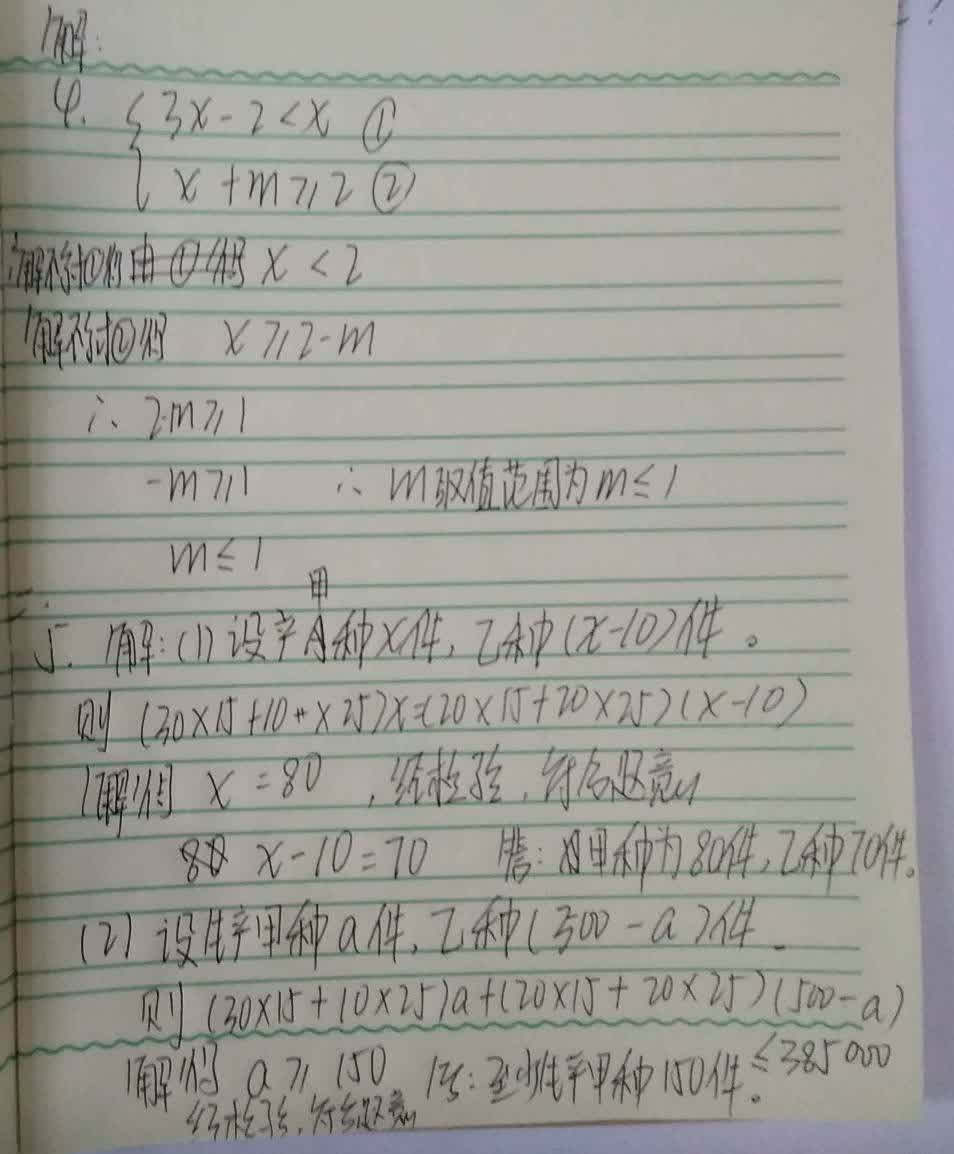 解:
4. { 3x-2<x ①
x+m≥2 ②
解不等式①得 由①得 x<2
解不等式②得 x≥2-m
∴ 2-m≥1
-m≥1 ∴ m取值范围为m≤1
m≤1
甲
5. 解:(1)设产A种x件,乙种(x-10)件。
则 (30×15+10+×25)x=(20×15+20×25)(x-10)
解得 x=80 ,经检验,符合题意
80 x-10=70 答:甲种为80件,乙种70件。
(2) 设生产甲种a件,乙种(500-a)件
则 (30×15+10×25)a+(20×15+20×25)(500-a)
≤385000
解得 a≥150 答:至少生产甲种150件。
经检验,符合题意